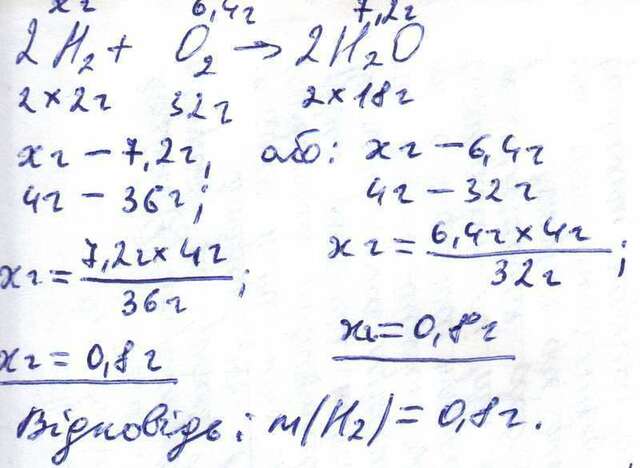 хг 6,4г 7,2г
2H₂ + O₂ → 2H₂O
2×2г 32г 2×18г
хг – 7,2г, або: хг – 6,4г
4г – 36г; 4г – 32г
хг = 7,2г×4г / 36г ; хг = 6,4г×4г / 32г ;
хг = 0,8г х = 0,8г
Відповідь: m(H₂) = 0,8г.